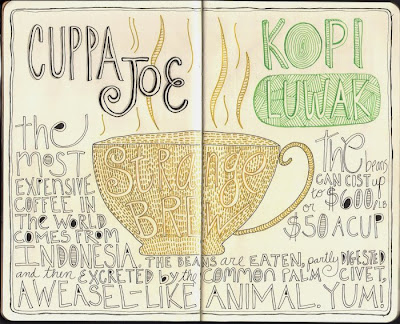 CUPPA
JOE
KOPI
LUWAK
STRANGE
BREW
the
MOST
EXPENSIVE
COFFEE IN
THE WORLD
COMES FROM
INDONESIA.
the beans
CAN COST up
to $600/LB
or
$50 A CUP
THE BEANS are EATEN, partly DIGESTED
and then EXCRETED by the COMMON PALM CIVET,
A WEASEL-LIKE ANIMAL. YUM!